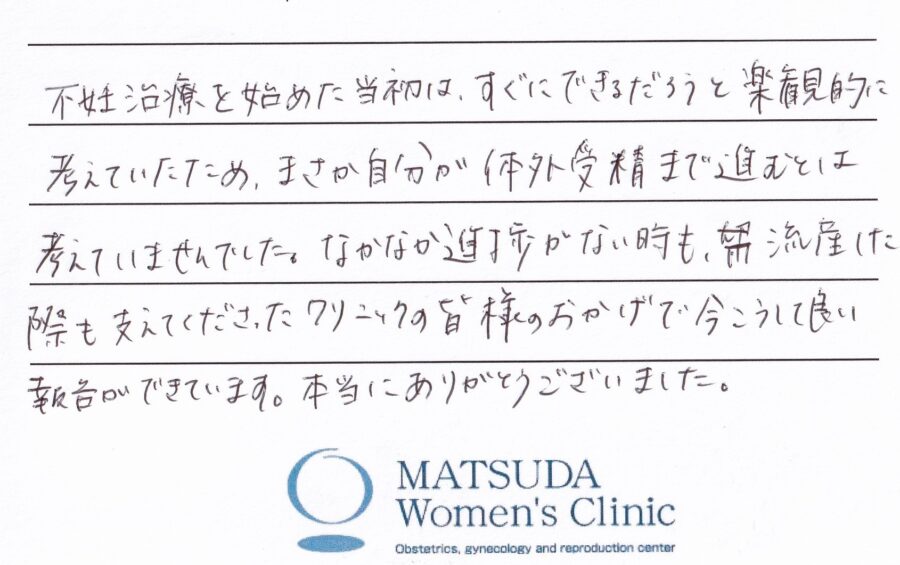 不妊治療を始めた当初は、すぐにできるだろうと楽観的に
考えていたため、まさか自分が体外受精まで進むとは
考えていませんでした。なかなか進歩がない時も、流産した
際も支えてくださったクリニックの皆様のおかげで今こうして良い
報告ができています。本当にありがとうございました。
MATSUDA
Women's Clinic
Obstetrics, gynecology and reproduction center